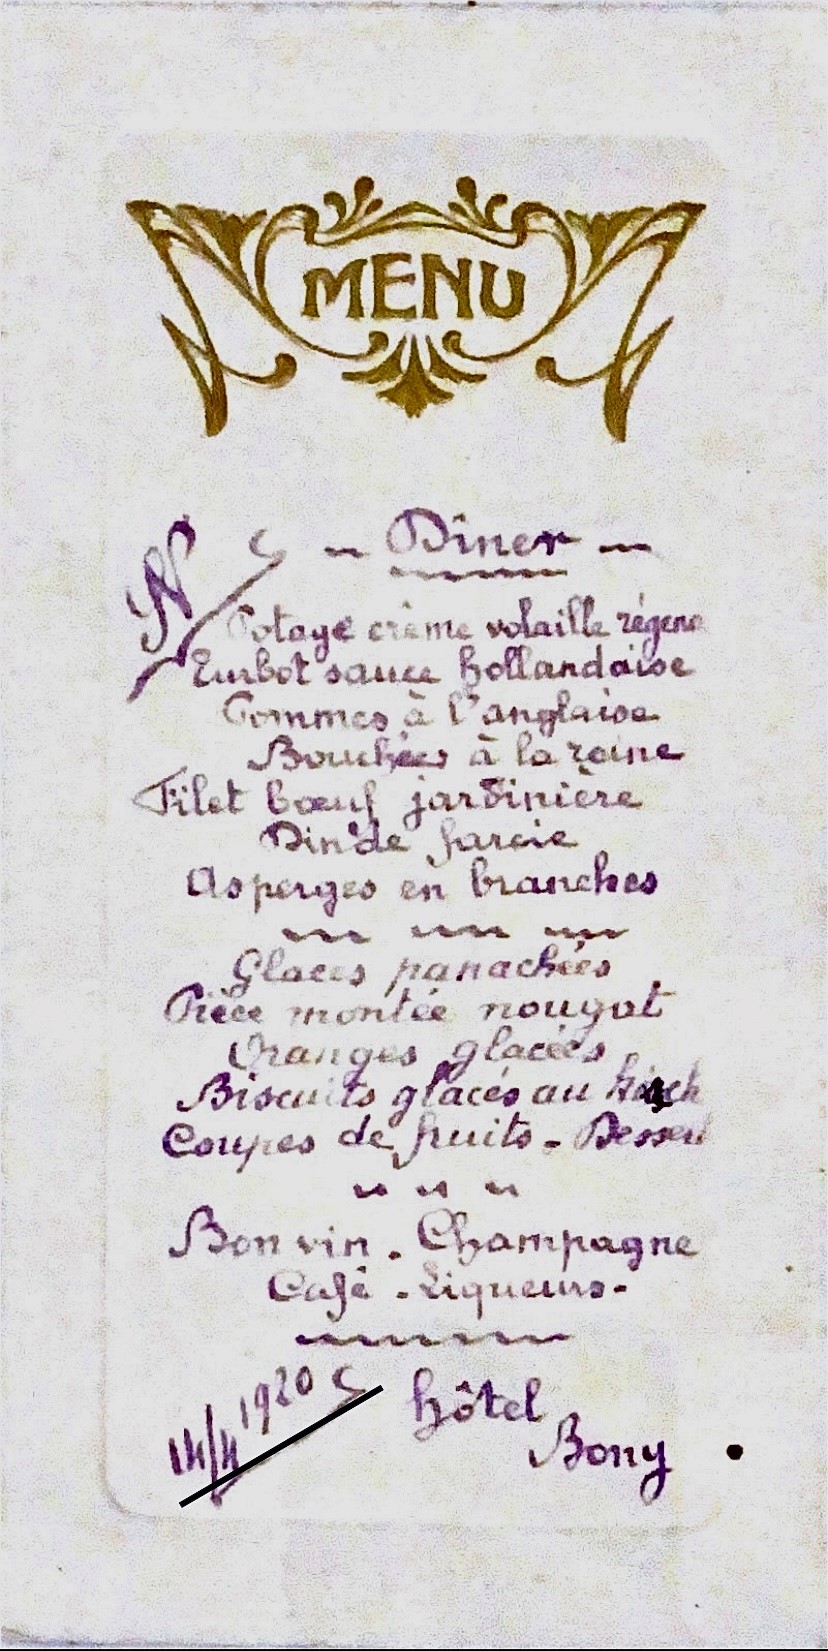 MENU
Dîner
Potage crème volaille régence
Turbot sauce hollandaise
Pommes à l'anglaise
Bouchées à la reine
Filet bœuf jardinière
Dinde farcie
Asperges en branches
Glaces panachées
Pièce montée nougat
Oranges glacées
Biscuits glacés au
Coupes de fruits - Dessert
Bon vin. Champagne
Café - Liqueurs -
14/4 1920
hôtel
Bony